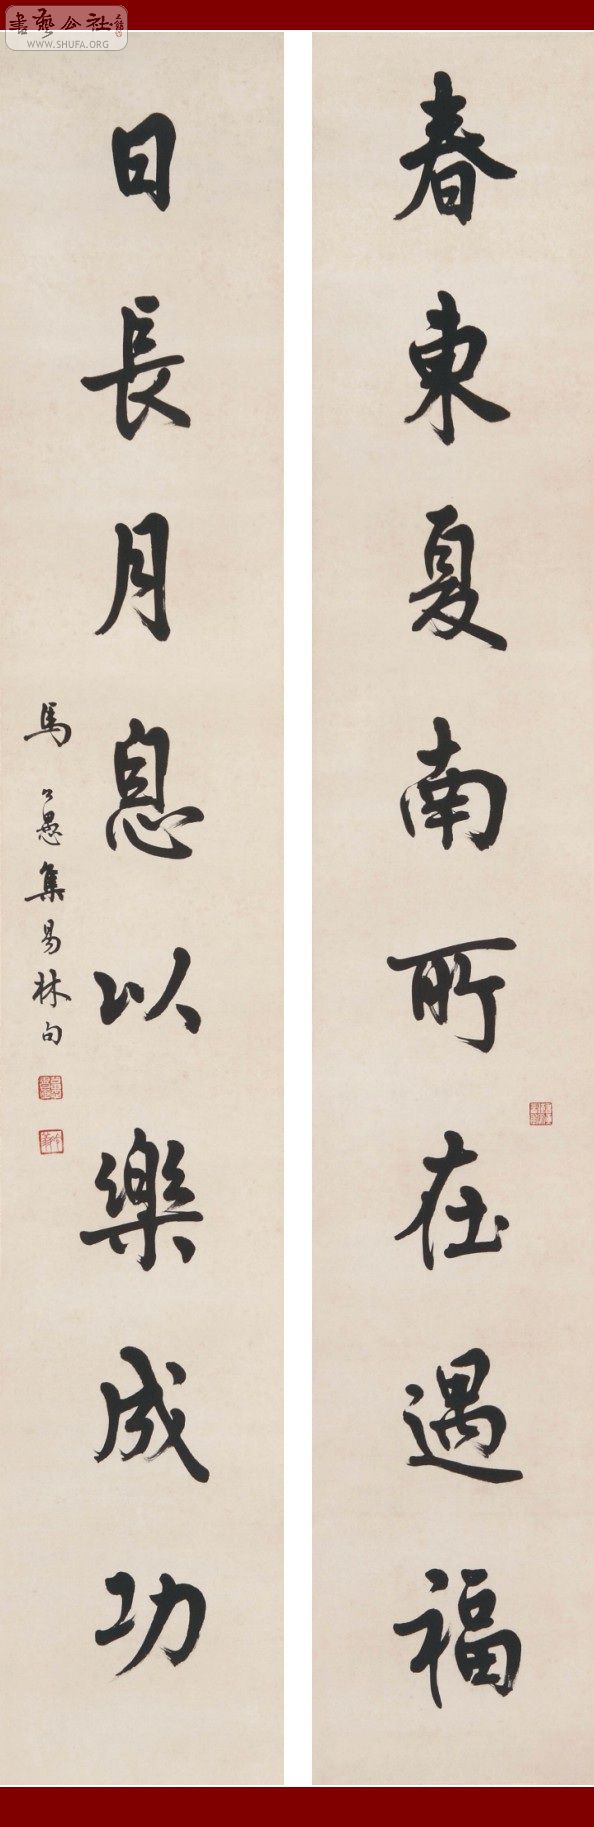 春東夏南所在遇福
日長月息以樂成功
馬公愚集易林句
書藝公社
WWW.SHUFA.ORG